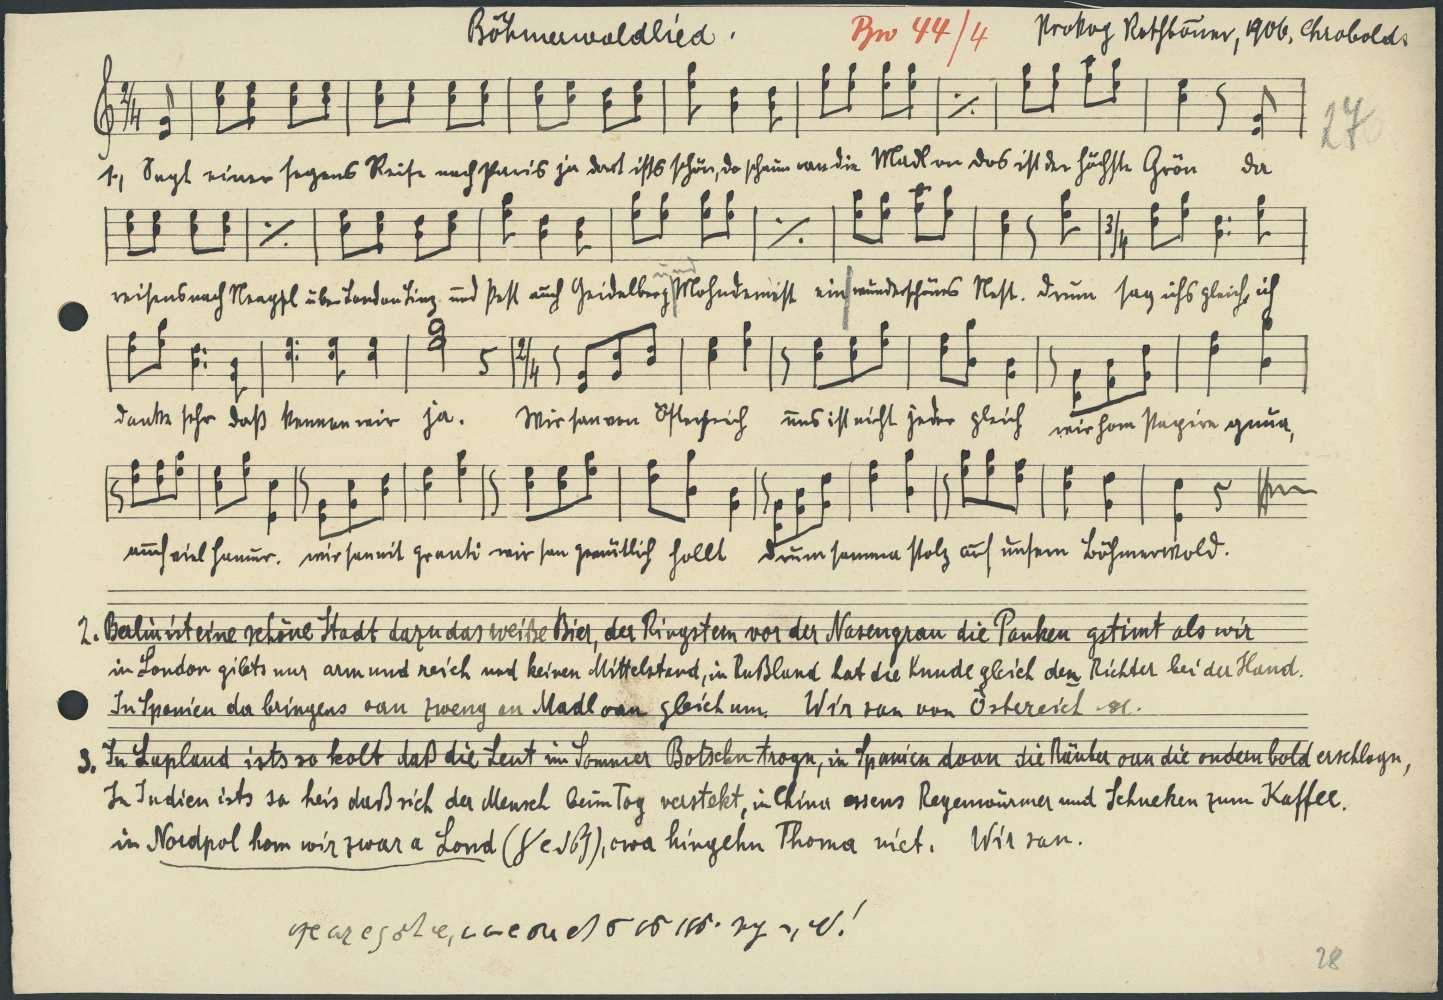 Böhmerwaldlied. Bw 44/4 Prokop Rothbauer, 1906, Chrobold.
27
1, Sagt einer segens Reise nach Paris ja dort ists schön, da schaun oan die Madl on das ist der höchste Grön da
reisens nach Neapel über London Linz und Pest auch Heidelberg und Mohndemist ein wunderschönes Nest. Drum sag ichs gleich, ich
danke sehr daß kennen wir ja. Wir san von Österreich uns ist nicht jeder gleich wir hom Papire gnua,
auch viel Hamur. wir san nit granti wir san gemütlich hollt drum samma stolz auf unsern Böhmerwold.
2. Berlin ist eine schöne Stadt dazu das weiße Bier, der Ringstem vor der Nasengrau die Panken gstimt als wir
in London gibts nur arm und reich und keinen Mittelstand, in Rußland hat die Kunde gleich den Richter bei der Hand.
In Spanien da bringens oan zweng an Madl oan gleich um. Wir san von Östereich
3. In Lapland ists so kolt daß die Leut im Sommer Botschn trogn, in Spanien doan die Räuber oan die ondern bold erschlogn,
In Indien ists so heis daß sich der Mensch beim Tog verstekt, in China essens Regenwürmer und Schneken zum Kaffee.
in Nordpol hom wir zwar a Lond owa hingehn Thoma niet. Wir san.
28